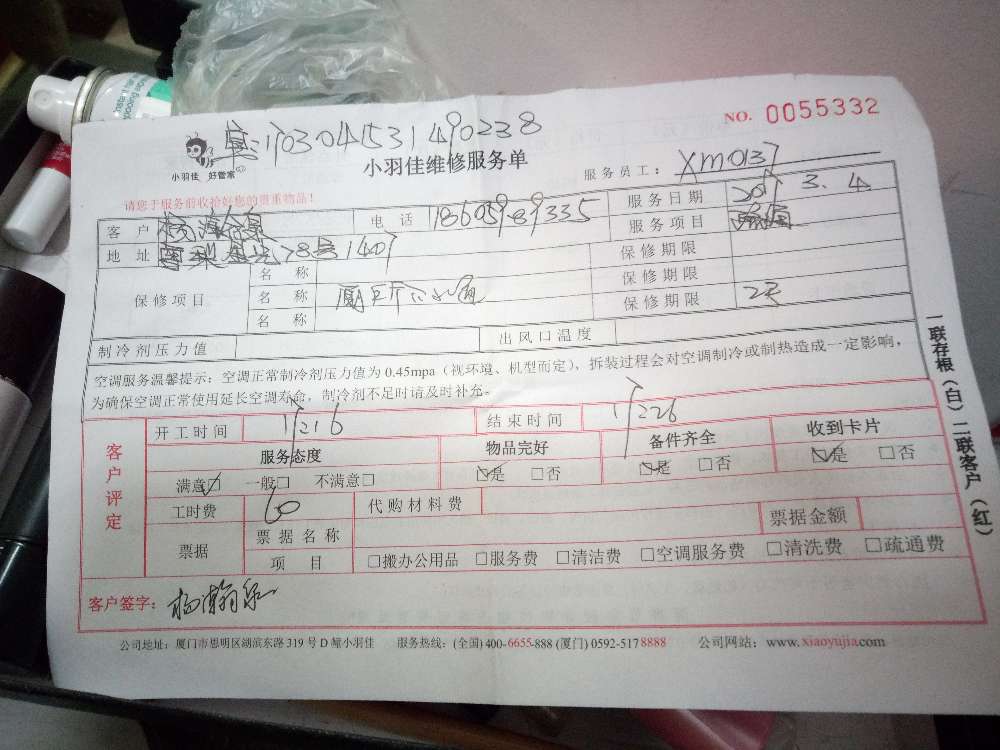 NO. 0055332
单:1703041531490238
小羽佳 好管家
小羽佳维修服务单
服务员工: XM0137
请您于服务前收拾好您的贵重物品!
客 户 电 话 18605989335 服务日期 2017 3. 4
地 址 78号1407 服务项目
保修项目 名 称 保修期限
名 称 保修期限
名 称 保修期限 2天
制冷剂压力值 出风口温度
空调服务温馨提示:空调正常制冷剂压力值为 0.45mpa(视环境、机型而定),拆装过程会对空调制冷或制热造成一定影响,
为确保空调正常使用延长空调寿命,制冷剂不足时请及时补充。
客户评定
开工时间 结束时间
服务态度 物品完好 备件齐全 收到卡片
满意☑ 一般□ 不满意□ ☑是 □否 ☑是 □否 ☑是 □否
工时费 60 代购材料费
票据 票据名称 票据金额
项 目 □搬办公用品 □服务费 □清洁费 □空调服务费 □清洗费 □疏通费
客户签字:
一联存根(白)二联客户(红)
公司地址:厦门市思明区湖滨东路 319 号 D 幢小羽佳 服务热线:(全国)400-6655-888 (厦门) 0592-5178888 公司网站:www.xiaoyujia.com